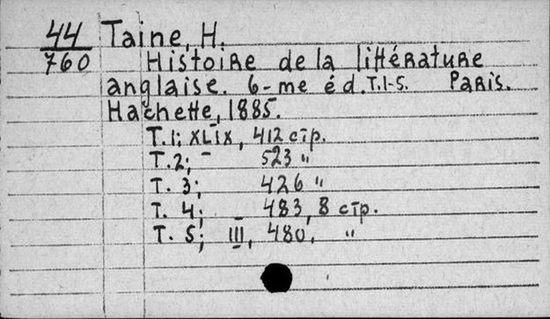 44 Taine, H.
760 Histoire de la littérature
anglaise. 6-me éd. T.1-5. Paris.
Hachette, 1885.
T.1; XLIX, 412 стр.
T.2; - 523 "
T. 3; 426 "
T. 4; - 483, 8 стр.
T. 5; III, 480. "